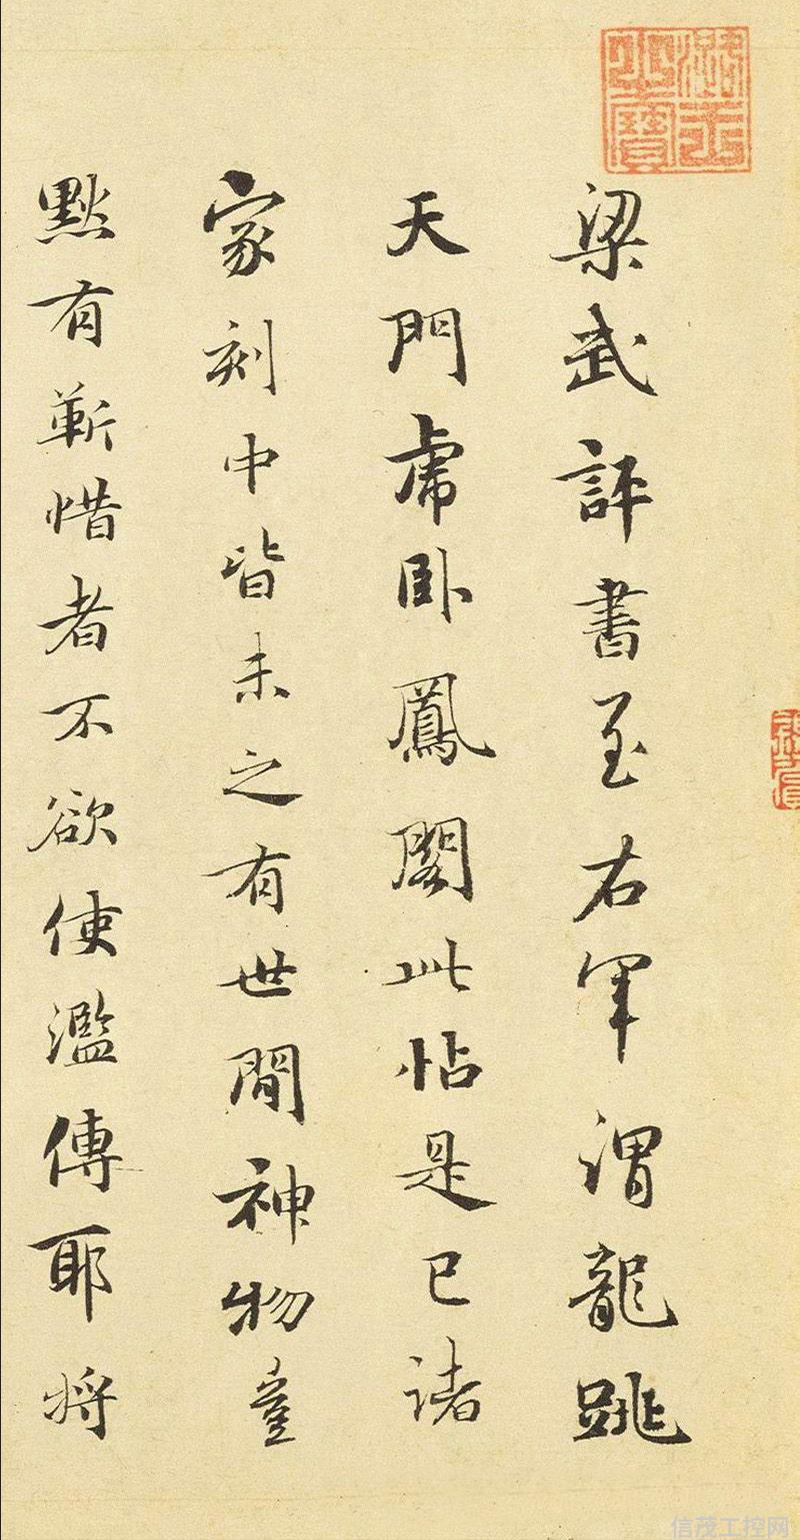 梁武評書至右軍謂龍跳
天門虎卧鳳閣此帖是已諸
家刻中皆未之有世間神物豈
黙有靳惜者不欲使濫傳耶將
信茂工控网